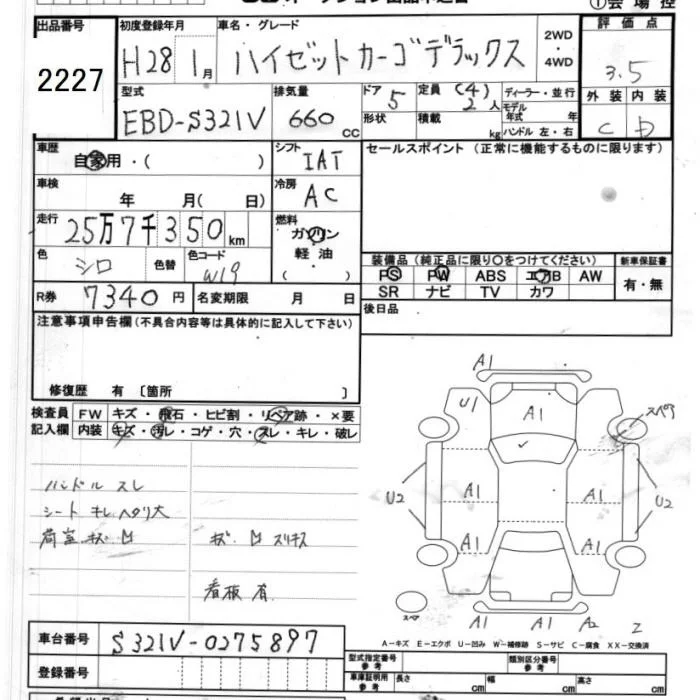 出品番号 初度登録年月 車名・グレード 2WD・4WD 評価点
2227 H28 1月 ハイゼットカーゴデラックス 3.5
型式 排気量 ドア 定員 ディーラー・並行 外装 内装
EBD-S321V 660 cc 5 (4) 2人 モデル年式 年 C D
形状 積載 kg ハンドル 左・右
車歴 自家用・( ) シフト IAT セールスポイント (正常に機能するものに限ります)
車検 年 月( 日) 冷房 AC
走行 25万7千350km 燃料 ガソリン 軽油 ( )
色 シロ 色替 色コード W19
装備品 (純正品に限り〇をつけてください) 新車保証書
PS PW ABS エアB AW 有・無
SR ナビ TV カワ
R券 7340円 名変期限 月 日 後日品
注意事項申告欄(不具合内容等は具体的に記入して下さい)
修復歴 有 〔箇所 〕
検査員 FW キズ・飛石・ヒビ割・リペア跡・×要
記入欄 内装 キズ・汚レ・コゲ・穴・スレ・キレ・破レ
ハンドル スレ
シート キレ ヘタリ大
荷室 キズ 凹 キズ 凹 スリキズ
看板 有
A1
U1 A1 スペア
U2 A1 A1 U2
A1 A1
スペア A1 A1 A2 Z
A−キズ E−エクボ U−凹み W−補修跡 S−サビ C−腐食 XX−交換済
車台番号 S321V-0275897
登録番号
型式指定番号 参考 類別区分番号 参考
車庫証明用 参考 長さ cm 幅 cm 高さ cm